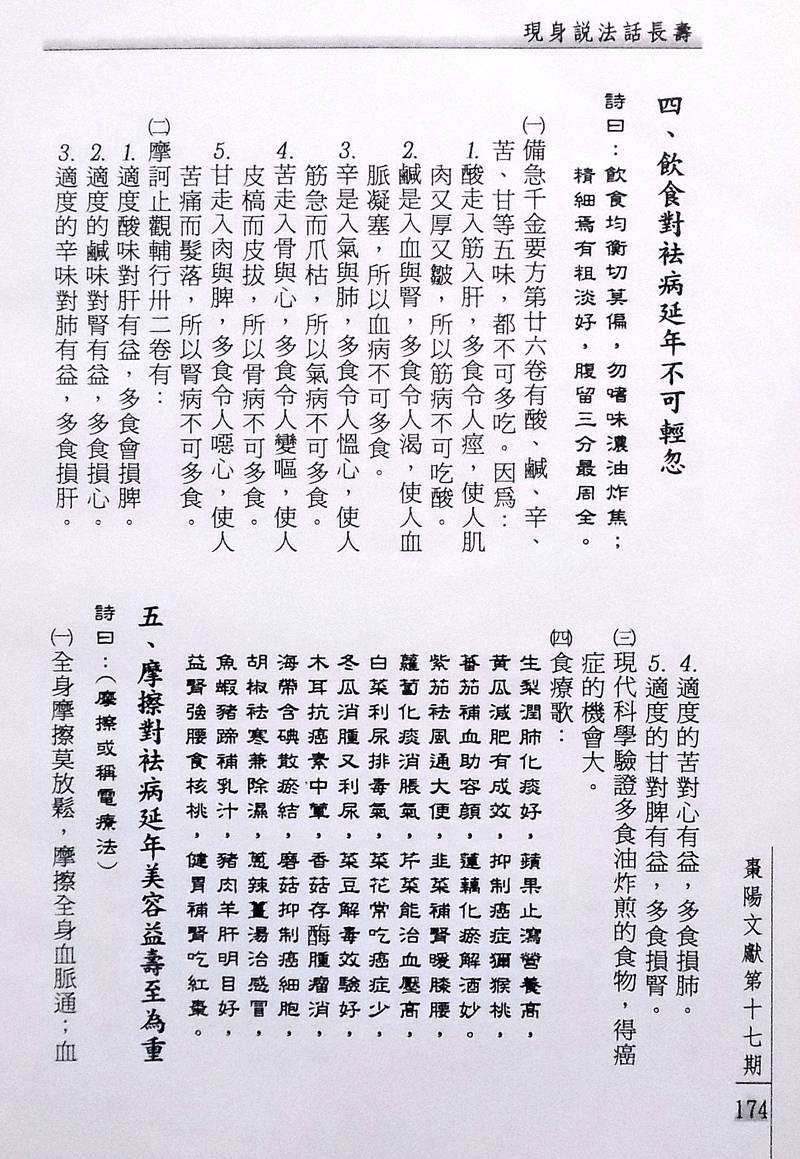 現身說法話長壽
四、飲食對袪病延年不可輕忽
詩曰：飲食均衡切莫偏，勿嗜味濃油炸焦；
精細焉有粗淡好，腹留三分最周全。
㈠備急千金要方第廿六卷有酸、鹹、辛、
苦、甘等五味，都不可多吃。因爲：
1.酸走入筋入肝，多食令人痙，使人肌
肉又厚又皺，所以筋病不可吃酸。
2.鹹是入血與腎，多食令人渴，使人血
脈凝塞，所以血病不可多食。
3.辛是入氣與肺，多食令人慍心，使人
筋急而爪枯，所以氣病不可多食。
4.苦走入骨與心，多食令人變嘔，使人
皮槁而皮拔，所以骨病不可多食。
5.甘走入肉與脾，多食令人噁心，使人
苦痛而髮落，所以腎病不可多食。
㈡摩訶止觀輔行卅二卷有：
1.適度酸味對肝有益，多食會損脾。
2.適度的鹹味對腎有益，多食損心。
3.適度的辛味對肺有益，多食損肝。
4.適度的苦對心有益，多食損肺。
5.適度的甘對脾有益，多食損腎。
㈢現代科學驗證多食油炸煎的食物，得癌
症的機會大。
㈣食療歌：
生梨潤肺化痰好，蘋果止瀉營養高，
黃瓜減肥有成效，抑制癌症獼猴桃，
蕃茄補血助容顏，蓮藕化瘀解酒妙。
紫茄袪風通大便，韭菜補腎暖膝腰，
蘿蔔化痰消脹氣，芹菜能治血壓高，
白菜利尿排毒氣，菜花常吃癌症少，
冬瓜消腫又利尿，菜豆解毒效驗好，
木耳抗癌素中葷，香菇存酶腫瘤消，
海帶含碘散瘀結，磨菇抑制癌細胞，
胡椒袪寒兼除濕，蔥辣薑湯治感冒，
魚蝦豬蹄補乳汁，豬肉羊肝明目好，
益腎強腰食核桃，健胃補腎吃紅棗。
五、摩擦對袪病延年美容益壽至為重
詩曰：（摩擦或稱電療法）
㈠全身摩擦莫放鬆，摩擦全身血脈通；血
棗陽文獻第十七期
174